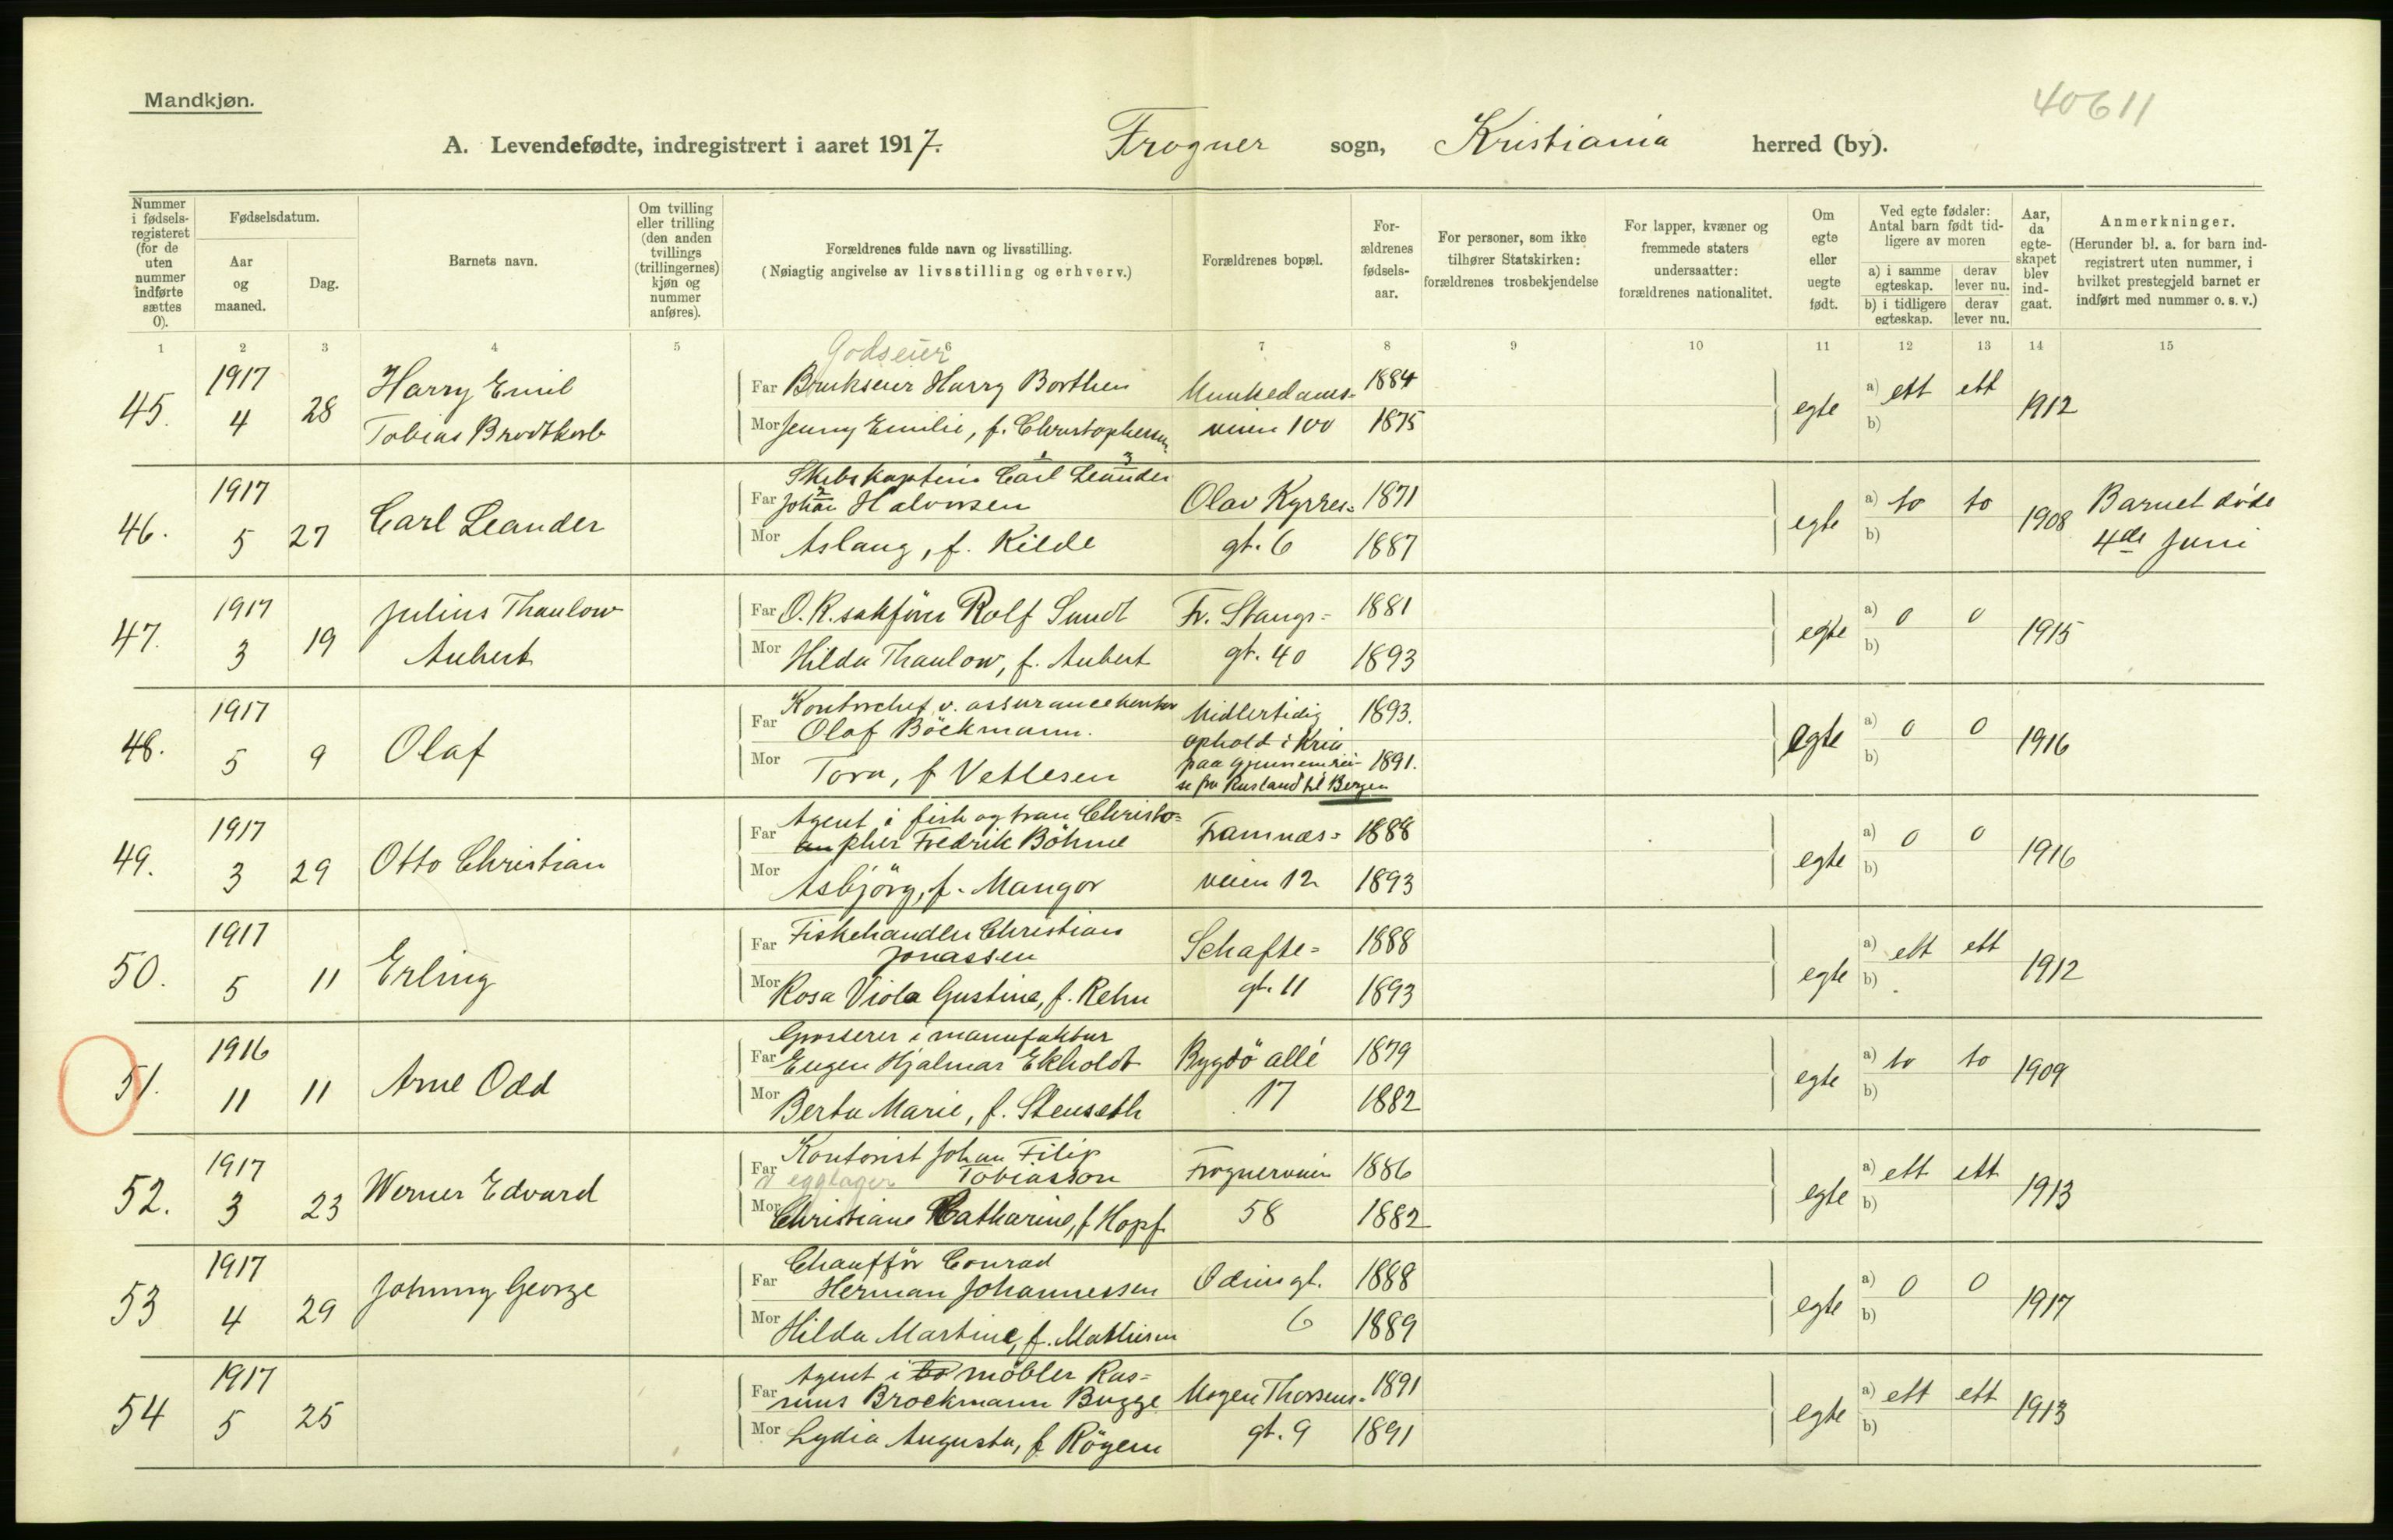 Mandkjøn.
40611
A. Levendefødte, indregistrert i aaret 1917. Frogner sogn, Kristiania herred (by).
Nummer i fødselsregisteret (for de uten nummer indførte sættes 0).
Fødselsdatum.
Aar og maaned.
Dag.
Barnets navn.
Om tvilling eller trilling (den anden tvillings (trillingernes) kjøn og nummer anføres).
Forældrenes fulde navn og livsstilling.
(Nøiagtig angivelse av livsstilling og erhverv.)
Forældrenes bopæl.
Forældrenes fødselsaar.
For personer, som ikke tilhører Statskirken: forældrenes trosbekjendelse
For lapper, kvæner og fremmede staters undersaatter: forældrenes nationalitet.
Om egte eller uegte født.
Ved egte fødsler: Antal barn født tidligere av moren
a) i samme egteskap. derav lever nu.
b) i tidligere egteskap. derav lever nu.
Aar, da egteskapet blev indgaat.
Anmerkninger.
(Herunder bl. a. for barn indregistrert uten nummer, i hvilket prestegjeld barnet er indført med nummer o. s. v.)
1 2 3 4 5 6 7 8 9 10 11 12 13 14 15
Godseier
45. 1917 4 28 Harry Emil Tobias Brodtkorb
Far Brukseier Harry Borthen Munkedams- 1884
Mor Jenny Emilie, f. Christophersen veien 100 1875
egte a) ett ett b) 1912
46. 1917 5 27 Carl Leander
Skibskaptein Carl 1 Leander 3
Far Johan 2 Halvorsen Olav Kyrres- 1871
Mor Aslaug, f. Kilde gt. 6 1887
egte a) to to b) 1908 Barnet døde 4de Juni
47. 1917 3 19 Julius Thaulow Aubert
Far O.R.sakfører Rolf Sundt Fr. Stangs- 1881
Mor Hilda Thaulow, f. Aubert gt. 40 1893
egte a) 0 0 b) 1915
48. 1917 5 9 Olaf
Kontorchef v. assurancekontor
Far Olaf Böckmann. Midlertidig 1893.
ophold i Kria
Mor Tora, f Vetlesen paa gjennemrei- 1891.
se fra Rusland til Bergen
egte a) 0 0 b) 1916
49. 1917 3 29 Otto Christian
Agent i fisk og tran Christo-
Far pher Fredrik Böhme Framnæs- 1888
Mor Asbjörg, f. Mangor veien 12 1893
egte a) 0 0 b) 1916
50. 1917 5 11 Erling
Fiskehandler Christian
Far Jonassen Schafte- 1888
Mor Rosa Viola Gustine, f. Rehn gt. 11 1893
egte a) ett ett b) 1912
51. 1916 11 11 Arne Odd
Grosserer i manufaktur
Far Eugen Hjalmar Ekholdt Bygdö allé 1879
Mor Berta Marie, f. Stenseth 17 1882
egte a) to to b) 1909
52. 1917 3 23 Werner Edvard
Kontorist Johan Filip
Far i egglager Tobiasson Frognerveien 1886
Mor Christiane Catharine, f Hopf 58 1882
egte a) ett ett b) 1913
53 1917 4 29 Johnny George
Chauffør Conrad
Far Herman Johannessen Odinsgt. 1888
Mor Hilda Martine, f. Mathisen 6 1889
egte a) 0 0 b) 1917
54 1917 5 25
Agent i möbler Ras-
Far mus Brockmann Bugge Mogen Thorsens- 1891
Mor Lydia Augusta, f Rögen gt. 9 1891
egte a) ett ett b) 1913